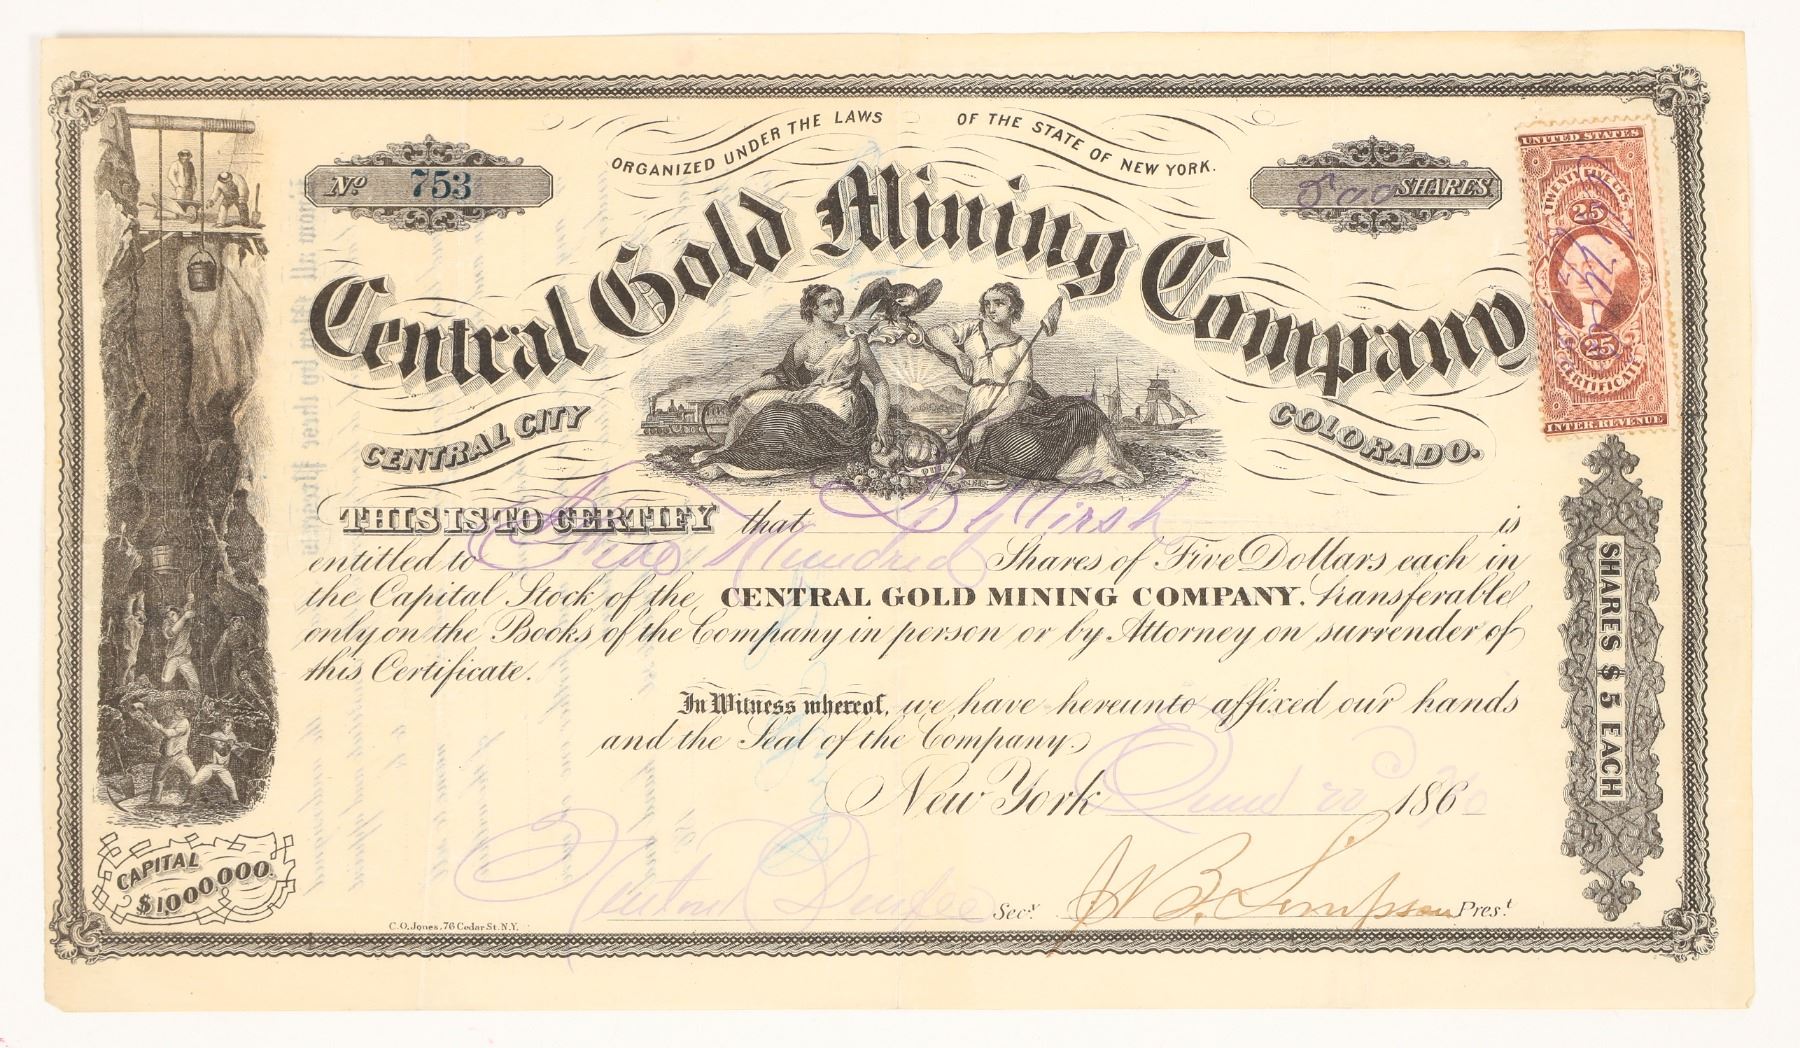 ORGANIZED UNDER THE LAWS OF THE STATE OF NEW YORK.
No 753
500 SHARES
UNITED STATES
TWENTY FIVE CTS.
25
25
CERTIFICATE
INTER. REVENUE
Central Gold Mining Company
CENTRAL CITY
COLORADO.
THIS IS TO CERTIFY that is
entitled to Five Hundred Shares of Five Dollars each in
the Capital Stock of the CENTRAL GOLD MINING COMPANY, transferable
only on the Books of the Company in person or by Attorney on surrender of
this Certificate.
In Witness whereof, we have hereunto affixed our hands
and the Seal of the Company.
New York 186
SHARES $5 EACH
CAPITAL
$1,000,000.
Secy. J W B. Simpson Prest.
C.O. Jones. 76 Cedar St. N.Y.